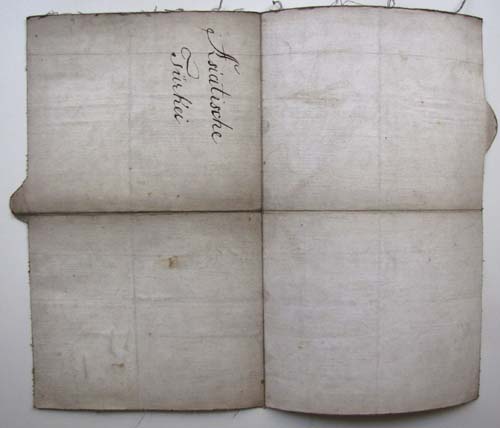 Asiatische
Türkei